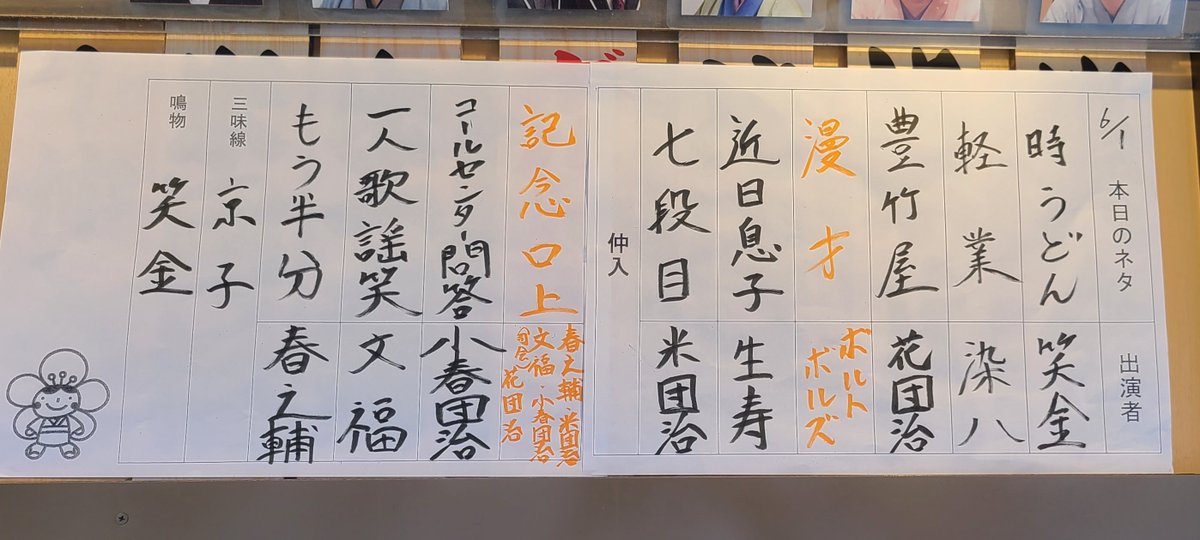 6/1 本日のネタ 出演者
時うどん 笑金
軽業 染八
豊竹屋 花団治
漫才 ボルトボルズ
近日息子 生寿
七段目 米団治
仲入
記念口上 春之輔・米団治
文福・小春団治
司会 花団治
コールセンター問答 小春団治
一人歌謡笑 文福
もう半分 春之輔
三味線 京子
鳴物 笑金